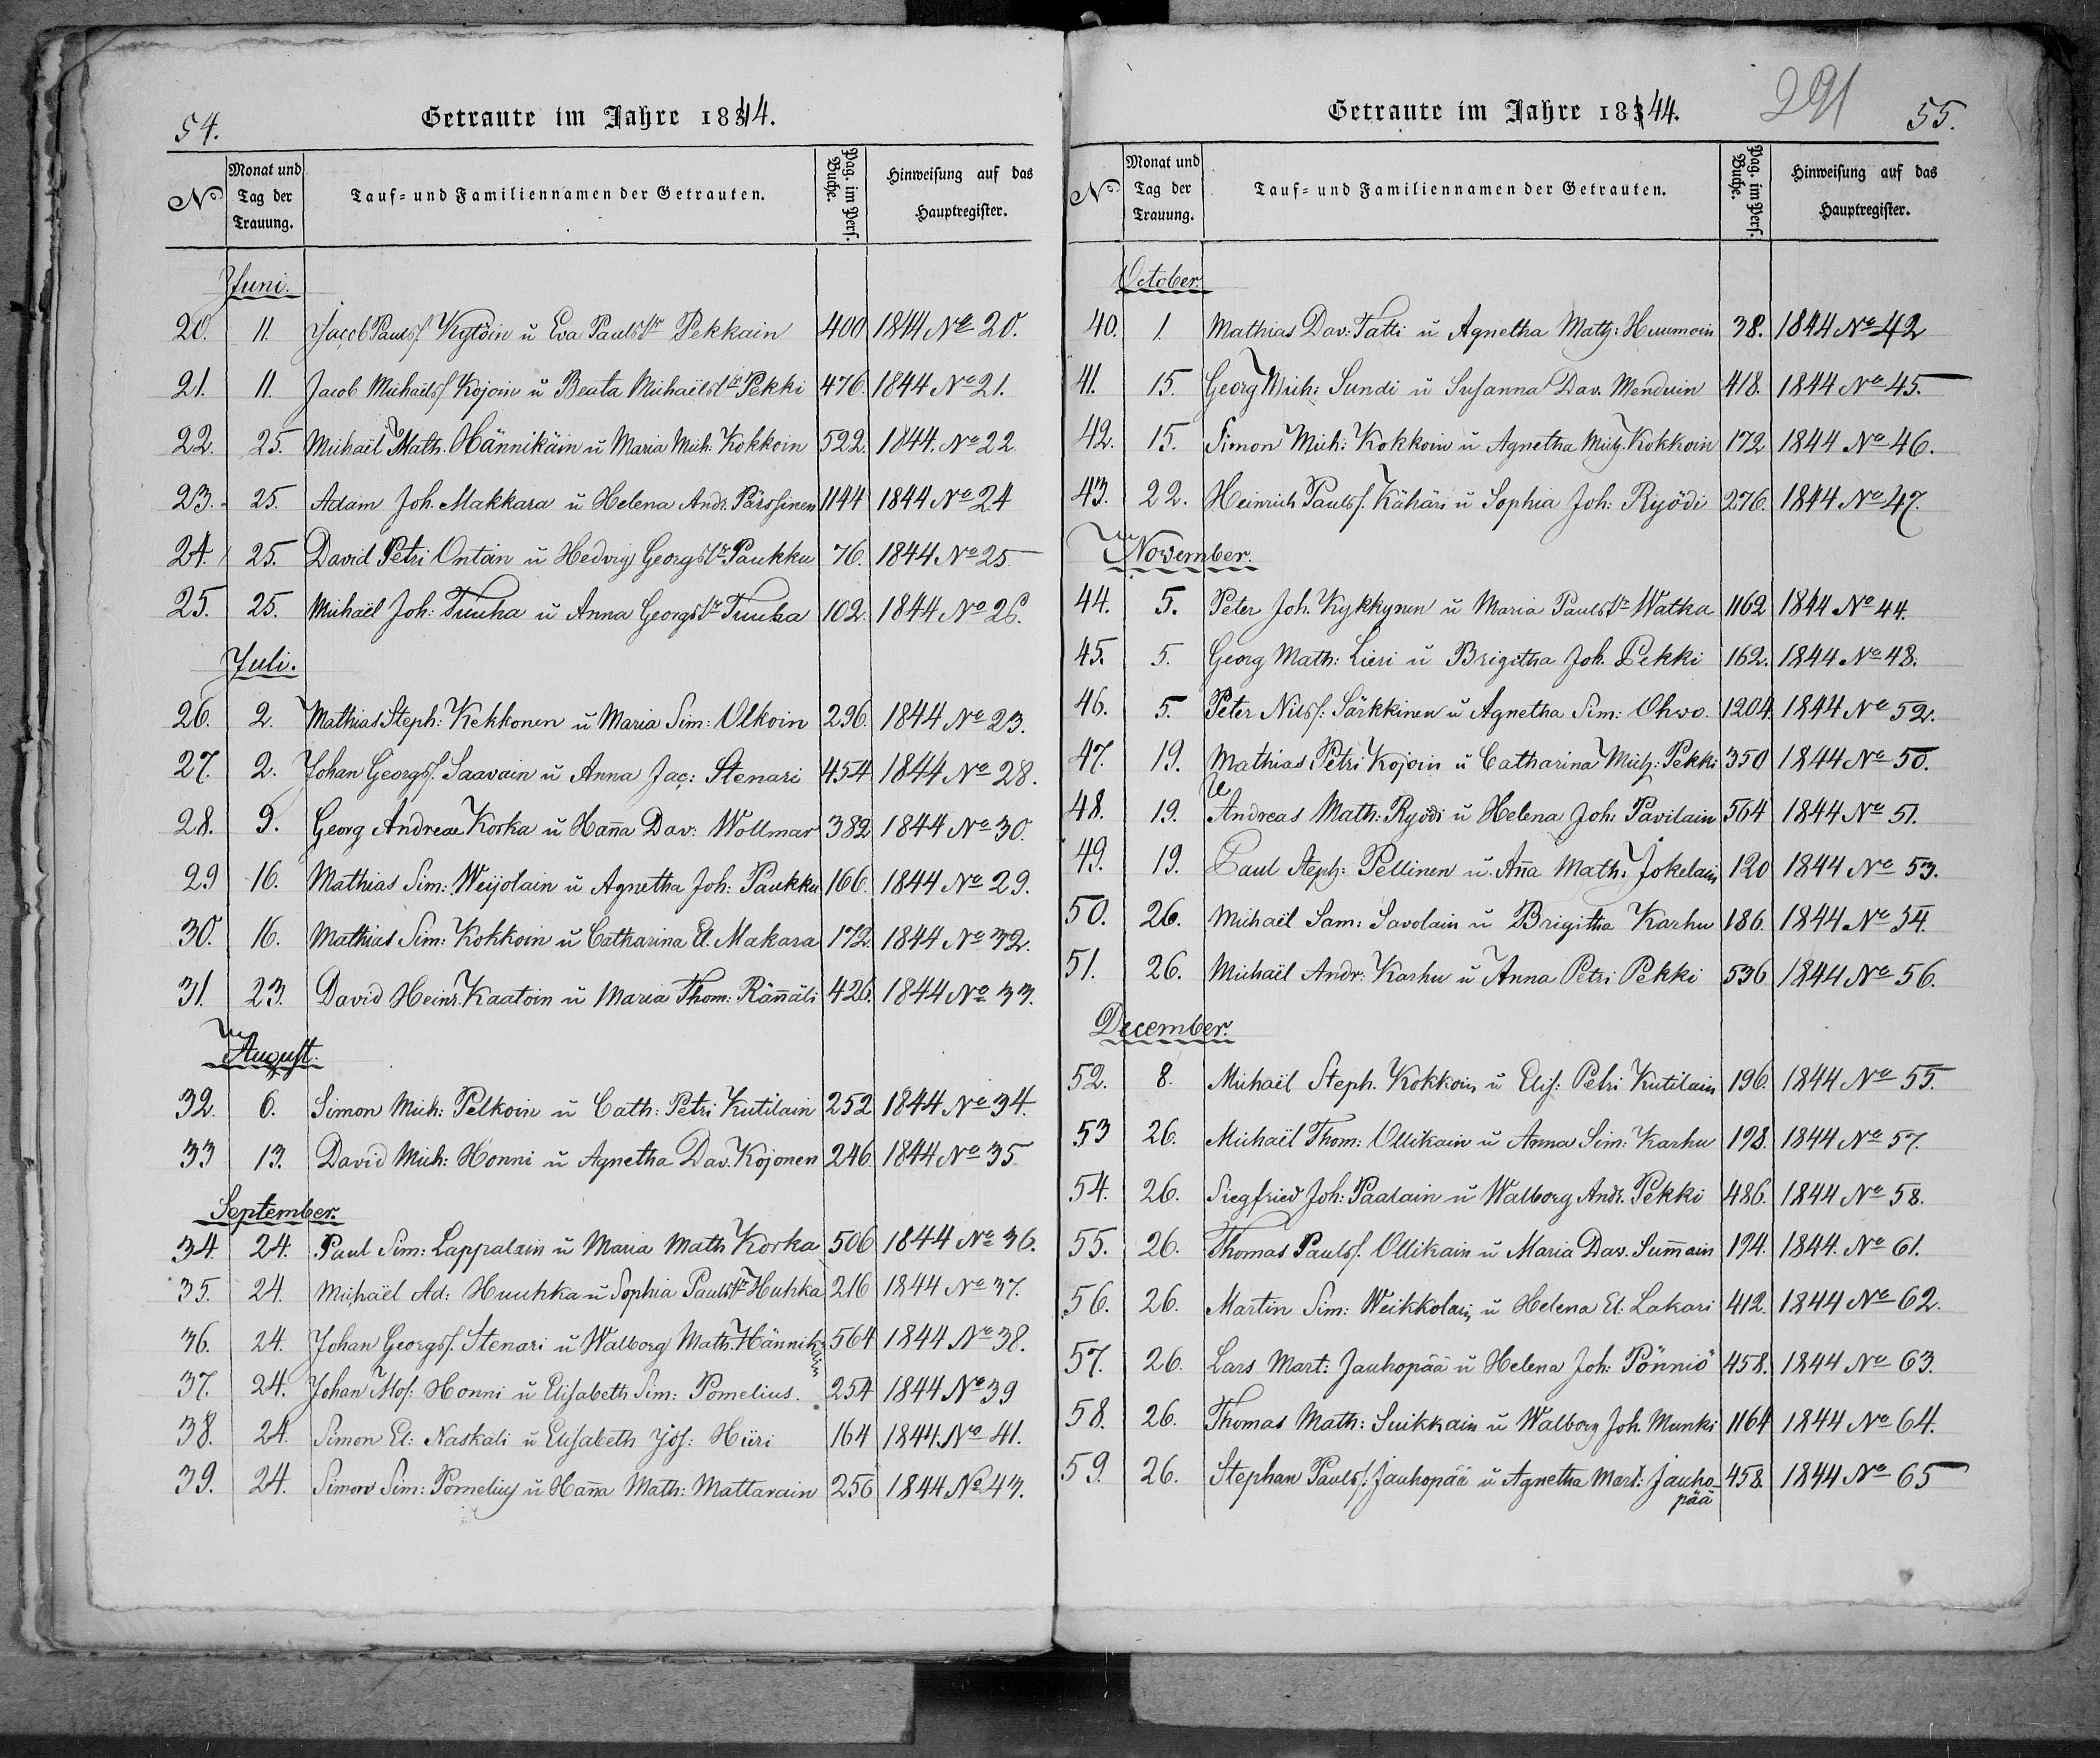 54.
Getraute im Jahre 1844.
No
Monat und Tag der Trauung.
Tauf- und Familiennamen der Getrauten.
Pag. im Pers. Buche.
Hinweisung auf das Hauptregister.
Juni.
20. 11. Jacob Paulsſ. Kytöin ŭ Eva Paulstr Pekkain 400 1844 No 20.
21. 11. Jacob Michaelsſ Kojoin ŭ Beata Michaëlstr Pekki 476. 1844 No 21.
22. 25. Michaël Math. Hännikäin ŭ Maria Mich: Kokkoin 522. 1844. No 22
23. 25. Adam Joh. Makkara ŭ Helena Andr. Pärsſinen 1144 1844 No 24
24. 25. David Petri Ontän ŭ Hedvig Georgstr Paukku 76. 1844. No 25
25. 25. Michaël Joh: Tuuha ŭ Anna Georgstr Tuuha 102. 1844 No 26.
Juli.
26. 2. Mathias Steph: Kekkonen ŭ Maria Sim: Olkoin 296. 1844 No 23.
27. 2. Johan Georgsſ. Saavain ŭ Anna Jac: Stenari 454 1844 No 28.
28. 9. Georg Andreae Korka ŭ Han̄a Dav: Wollmar 382 1844 No 30.
29 16. Mathias Sim: Weijolain ŭ Agnetha Joh: Paukku 166. 1844 No 29.
30. 16. Mathias Sim: Kokkoin ŭ Catharina El. Makara 172. 1844 No 32.
31. 23. David Heinr. Kaatoin ŭ Maria Thom: Rän̄äli 426. 1844 No 33.
August.
32. 6. Simon Mich: Pelkoin ŭ Cath: Petri Kutilain 252 1844 No 34.
33 13. David Mich: Honni ŭ Agnetha Dav. Kojonen 246. 1844 No 35.
September.
34. 24. Paul Sim: Lappalain ŭ Maria Math Korka 506 1844 No 36.
35. 24. Michaël Ad: Huuhka ŭ Sophia Paulstr Huhka 216 1844 No 37.
36. 24. Johan Georgsſ. Stenari ŭ Walborg Math. Hännikäin 564 1844 No 38.
37. 24. Johan Moſ: Honni ŭ Eliſabeth Sim: Pomelius. 254 1844 No 39
38. 24. Simon El: Naskali ŭ Eliſabeth Joſ: Hüri 164 1844. No 41.
39. 24. Simon Sim: Pomelius ŭ Han̄a Math: Mattarain 256 1844 No 43.
291
55.
Getraute im Jahre 1844.
No
Monat und Tag der Trauung.
Tauf- und Familiennamen der Getrauten.
Pag. im Pers. Buche.
Hinweisung auf das Hauptregister.
October.
40. 1. Mathias Dav: Tatti ŭ Agnetha Math: Huumoin 38. 1844 No 42
41. 15. Georg Mich: Sundi ŭ Suſanna Dav. Menduin 418. 1844 No 45.
42. 15. Simon Mich: Kokkoin ŭ Agnetha Mich. Kokkoin 172 1844 No 46.
43. 22. Heinrich Paulsſ. Kähäri ŭ Sophia Joh: Ryödi 276. 1844 No 47.
November.
44. 5. Peter Joh. Kykkynen ŭ Maria Paulstr Watka 1162 1844 No 44.
45. 5. Georg Math: Lieri ŭ Brigitha Joh. Pekki 162. 1844 No 48.
46. 5. Peter Nilsſ: Särkkinen ŭ Agnetha Sim: Ohvo. 1204. 1844 No 52.
47. 19. Mathias Petri Kojoin ŭ Catharina Mich: Pekki 350 1844 No 50.
48. 19. Andreas Math: Ryödi ŭ Helena Joh: Pavilain 564 1844 No 51.
49. 19. Paul Steph: Pellinen ŭ An̄a Math: Jokelain 120 1844 No 53.
50. 26. Michaël Sam: Savolain ŭ Brigitha Karhu 186. 1844 No 54.
51. 26. Michaël Andr: Karhu ŭ Anna Petri Pekki 536 1844 No 56.
December.
52. 8. Michaël Steph. Kokkoin ŭ Eliſ: Petri Kutilain 196. 1844 No 55.
53 26. Michaël Thom: Ollikain ŭ Anna Sim: Karhu 198. 1844 No 57.
54. 26. Siegfried Joh: Paalain ŭ Walborg Andr. Pekki 486. 1844 No 58.
55. 26. Thomas Paulsſ. Ollikain ŭ Maria Dav. Sum̄ain 194. 1844. No 61.
56. 26. Martin Sim: Weikkolain ŭ Helena El: Lakari 412. 1844 No 62.
57. 26. Lars Mart: Jauhopää ŭ Helena Joh: Pönniö 458. 1844 No 63.
58. 26. Thomas Math: Suikkain ŭ Walborg Joh. Munki 1164 1844 No 64.
59. 26. Stephan Paulsſ: Jauhopää ŭ Agnetha Mart: Jauhopää 458. 1844 No 65